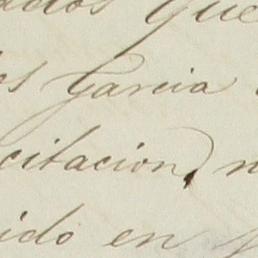 que
os Garcia
citacion, n
ido en